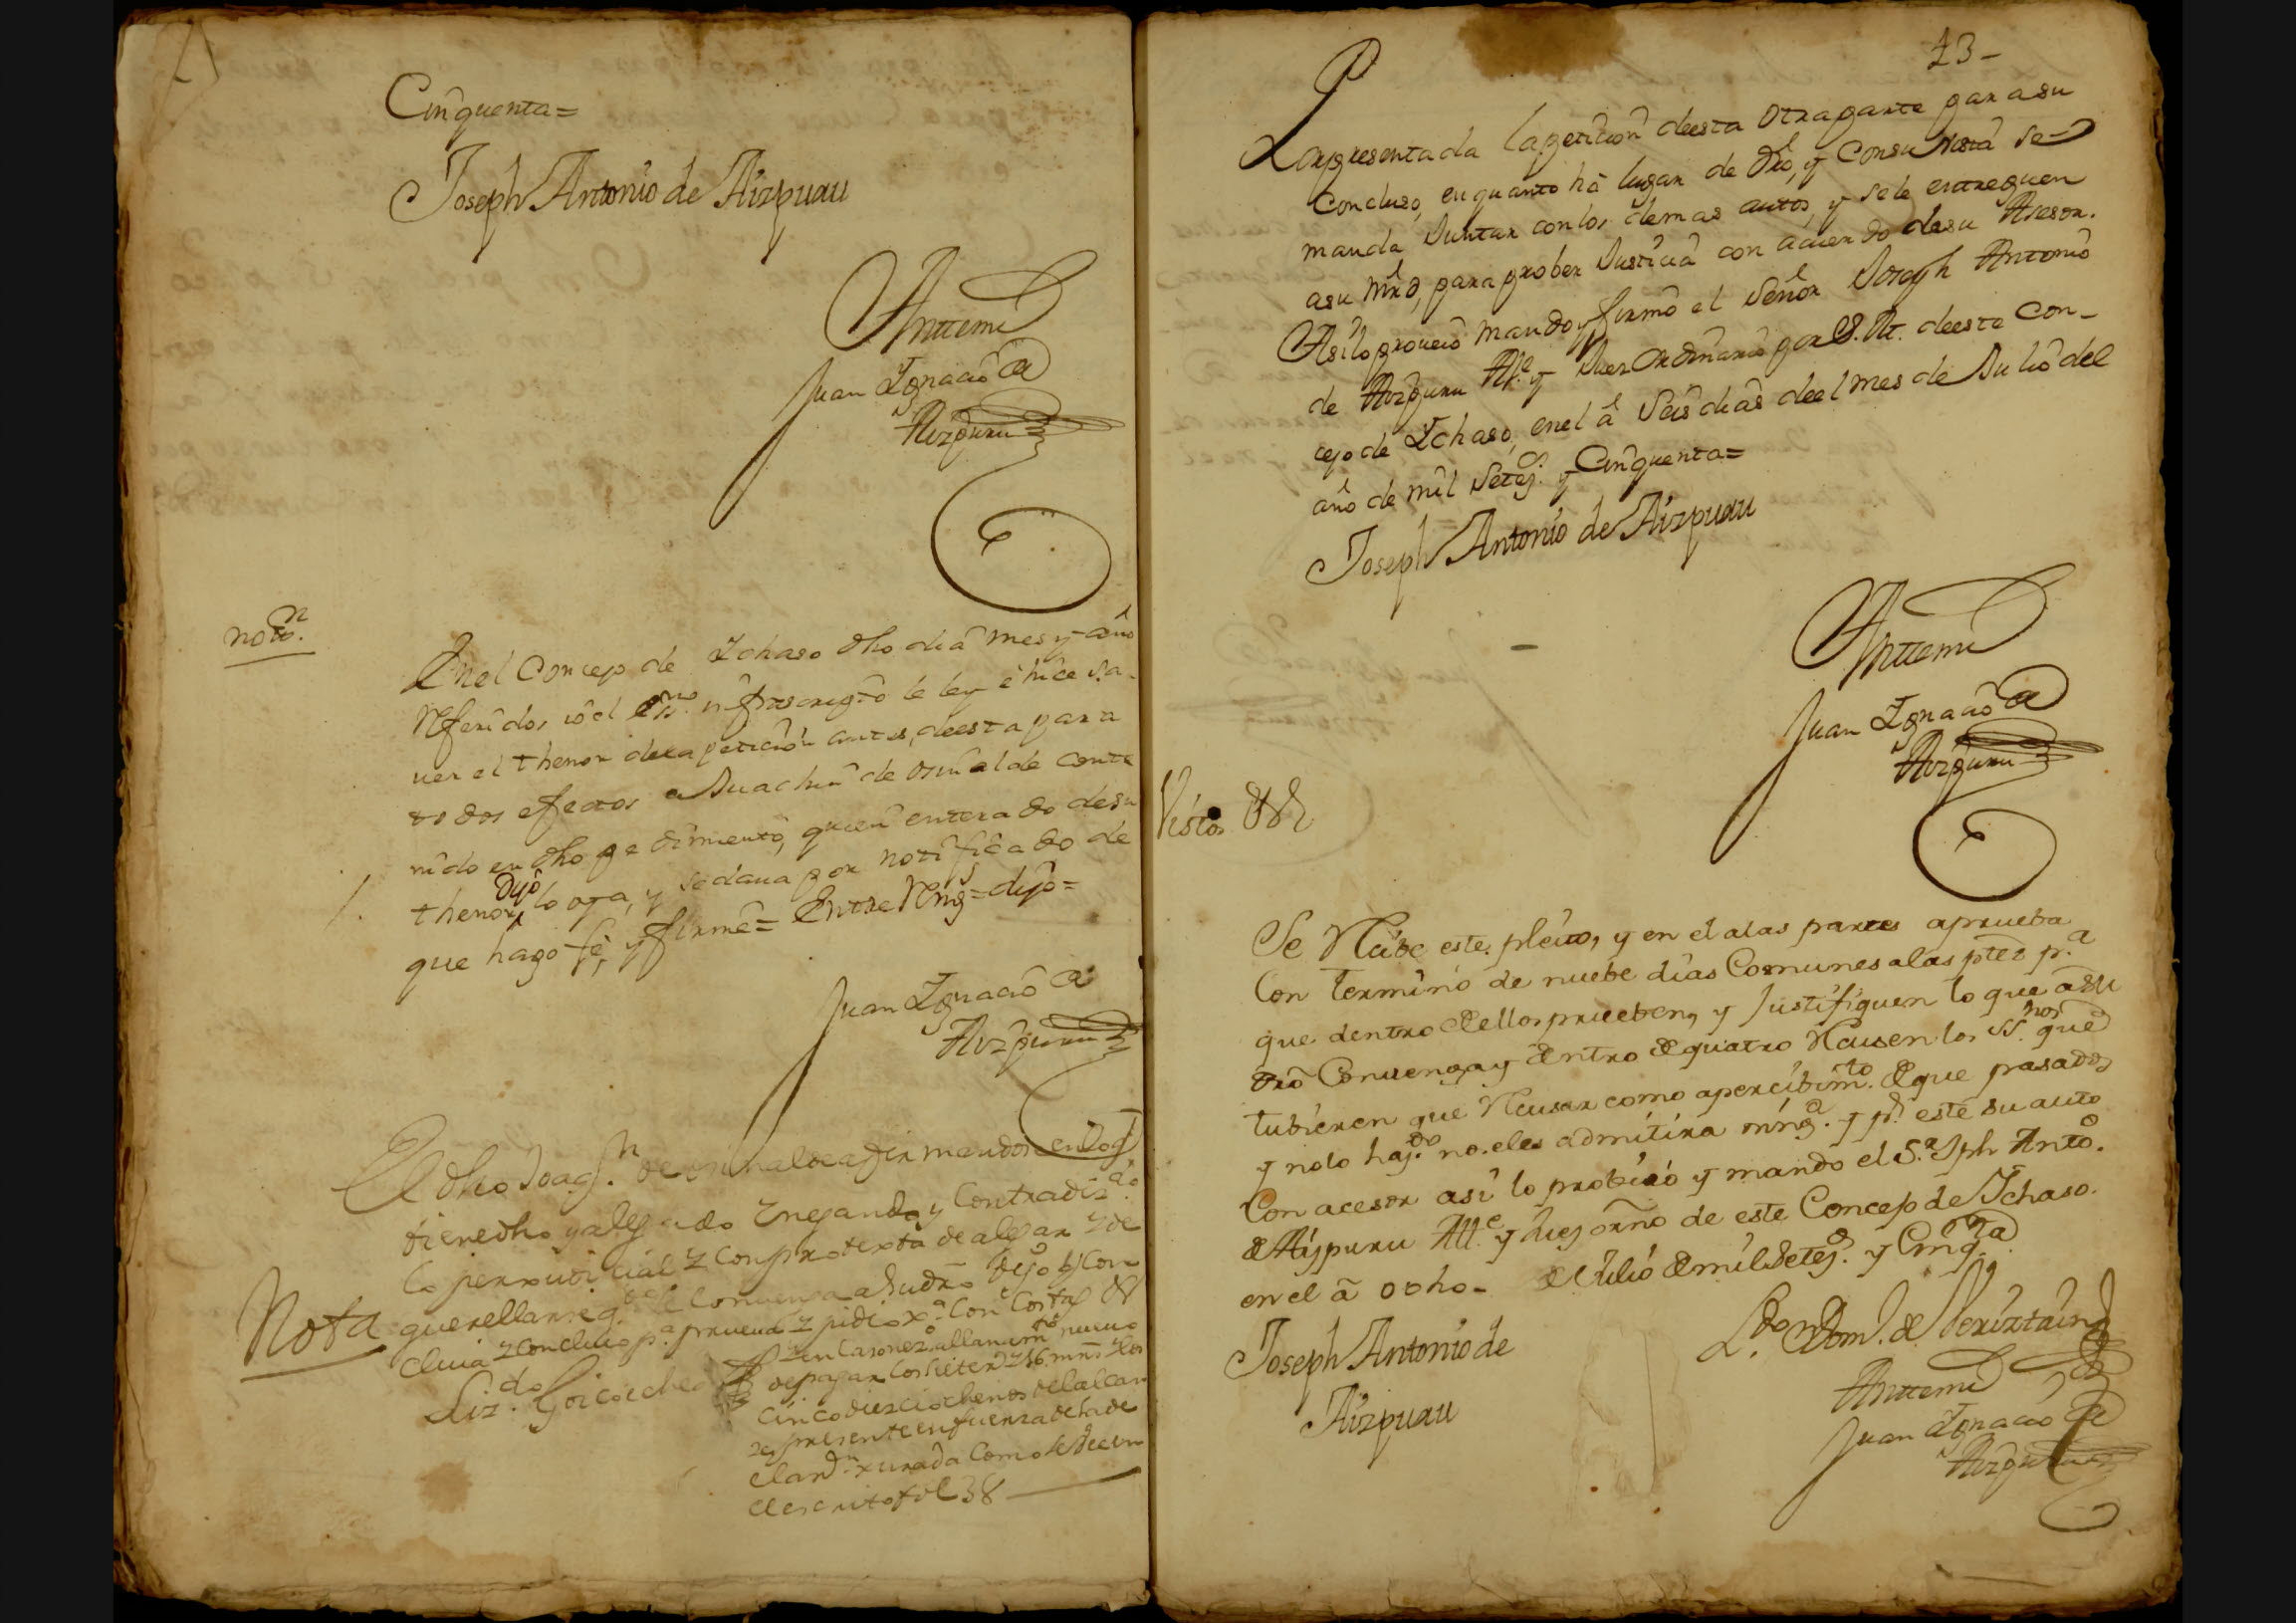 Cinquenta=
Joseph Antonio de Aizpuru
Anttemi
Juan Ignacio de
Aizpuru
noton.
Enel Concejo de Ichaso dho dia mes y año
Referidos io el essno. infrascripto le ley è hice sa-
uer el thenor dela peticion antes, deesta para
todos efectos a Juachin de osinalde conte
nido en dho pedimento, quien enterado desu
thenor, dijo lo oya, y sedaua por notificado de
que hago fè, y firmè= Entre Rengs= dijo=
Juan Ignacio de
Aizpuru
El dho Joaqn. de osinalde afirmandose enloq
tiene dho y alegado y negando y Contradizdo.
lo perxudicial y Con protexta de alegar y de
querellarse q. le Convenga a su dro dijo q Con
Nota
cluia y Concluio pa. prueua y pidio xa. Con Costas &
Liz.do Goicoechea
y en Caso nezo. allanamto nuevo
de pagar los siete Rs y 16 mrs y los
cinco diez i ochenos del alcan
ze presente en fuerza de la de
claron. xurada Como se dice en
el escrito fol 38
23-
Por presentada la peticion deesta otra parte para su
Concluso, en quanto hà lugar de dro, y Con su vista se
manda Juntar con los demas autos, y se le entreguen
a su mrd, para prober Justicia con acuerdo de su Asesor.
Asi lo proueiò mandò y firmò el Señor Joseph Antonio
de Aizpuru Alce. y Juez Ordinario por S. M. deeste Con-
cejo de Ichaso, en el à Seis dias deel mes de Julio del
año de mil Setezs. y Cinquenta=
Joseph Antonio de Aizpuru
Anttemi
Juan Ignacio de
Aizpuru
Vistos &&
Se Reciue este pleito, y en el a las partes aprueba
Con termino de nuebe dias Comunes a las ptes pa.
que dentro de ellos prueben, y Justifiquen lo que a su
dro Convenga y dentro de quatro Recusen los ssnos. que
tubieren que Recusar como apercibimto. de que pasados
y no lo hazdo. no se les admitira ninga. y pr. este su auto
Con acesor asi lo probeió y mando el Sr. Jph Anto.
de Aizpuru Alle. y Juez orño de este Concejo de Ichaso.
en el à ocho- de Julio de mil Setezs. y Cinqta.
Joseph Antonio de
Aizpuru
Ldo. Domn. de
Anttemi
Juan Ignacio de
Aizpuru